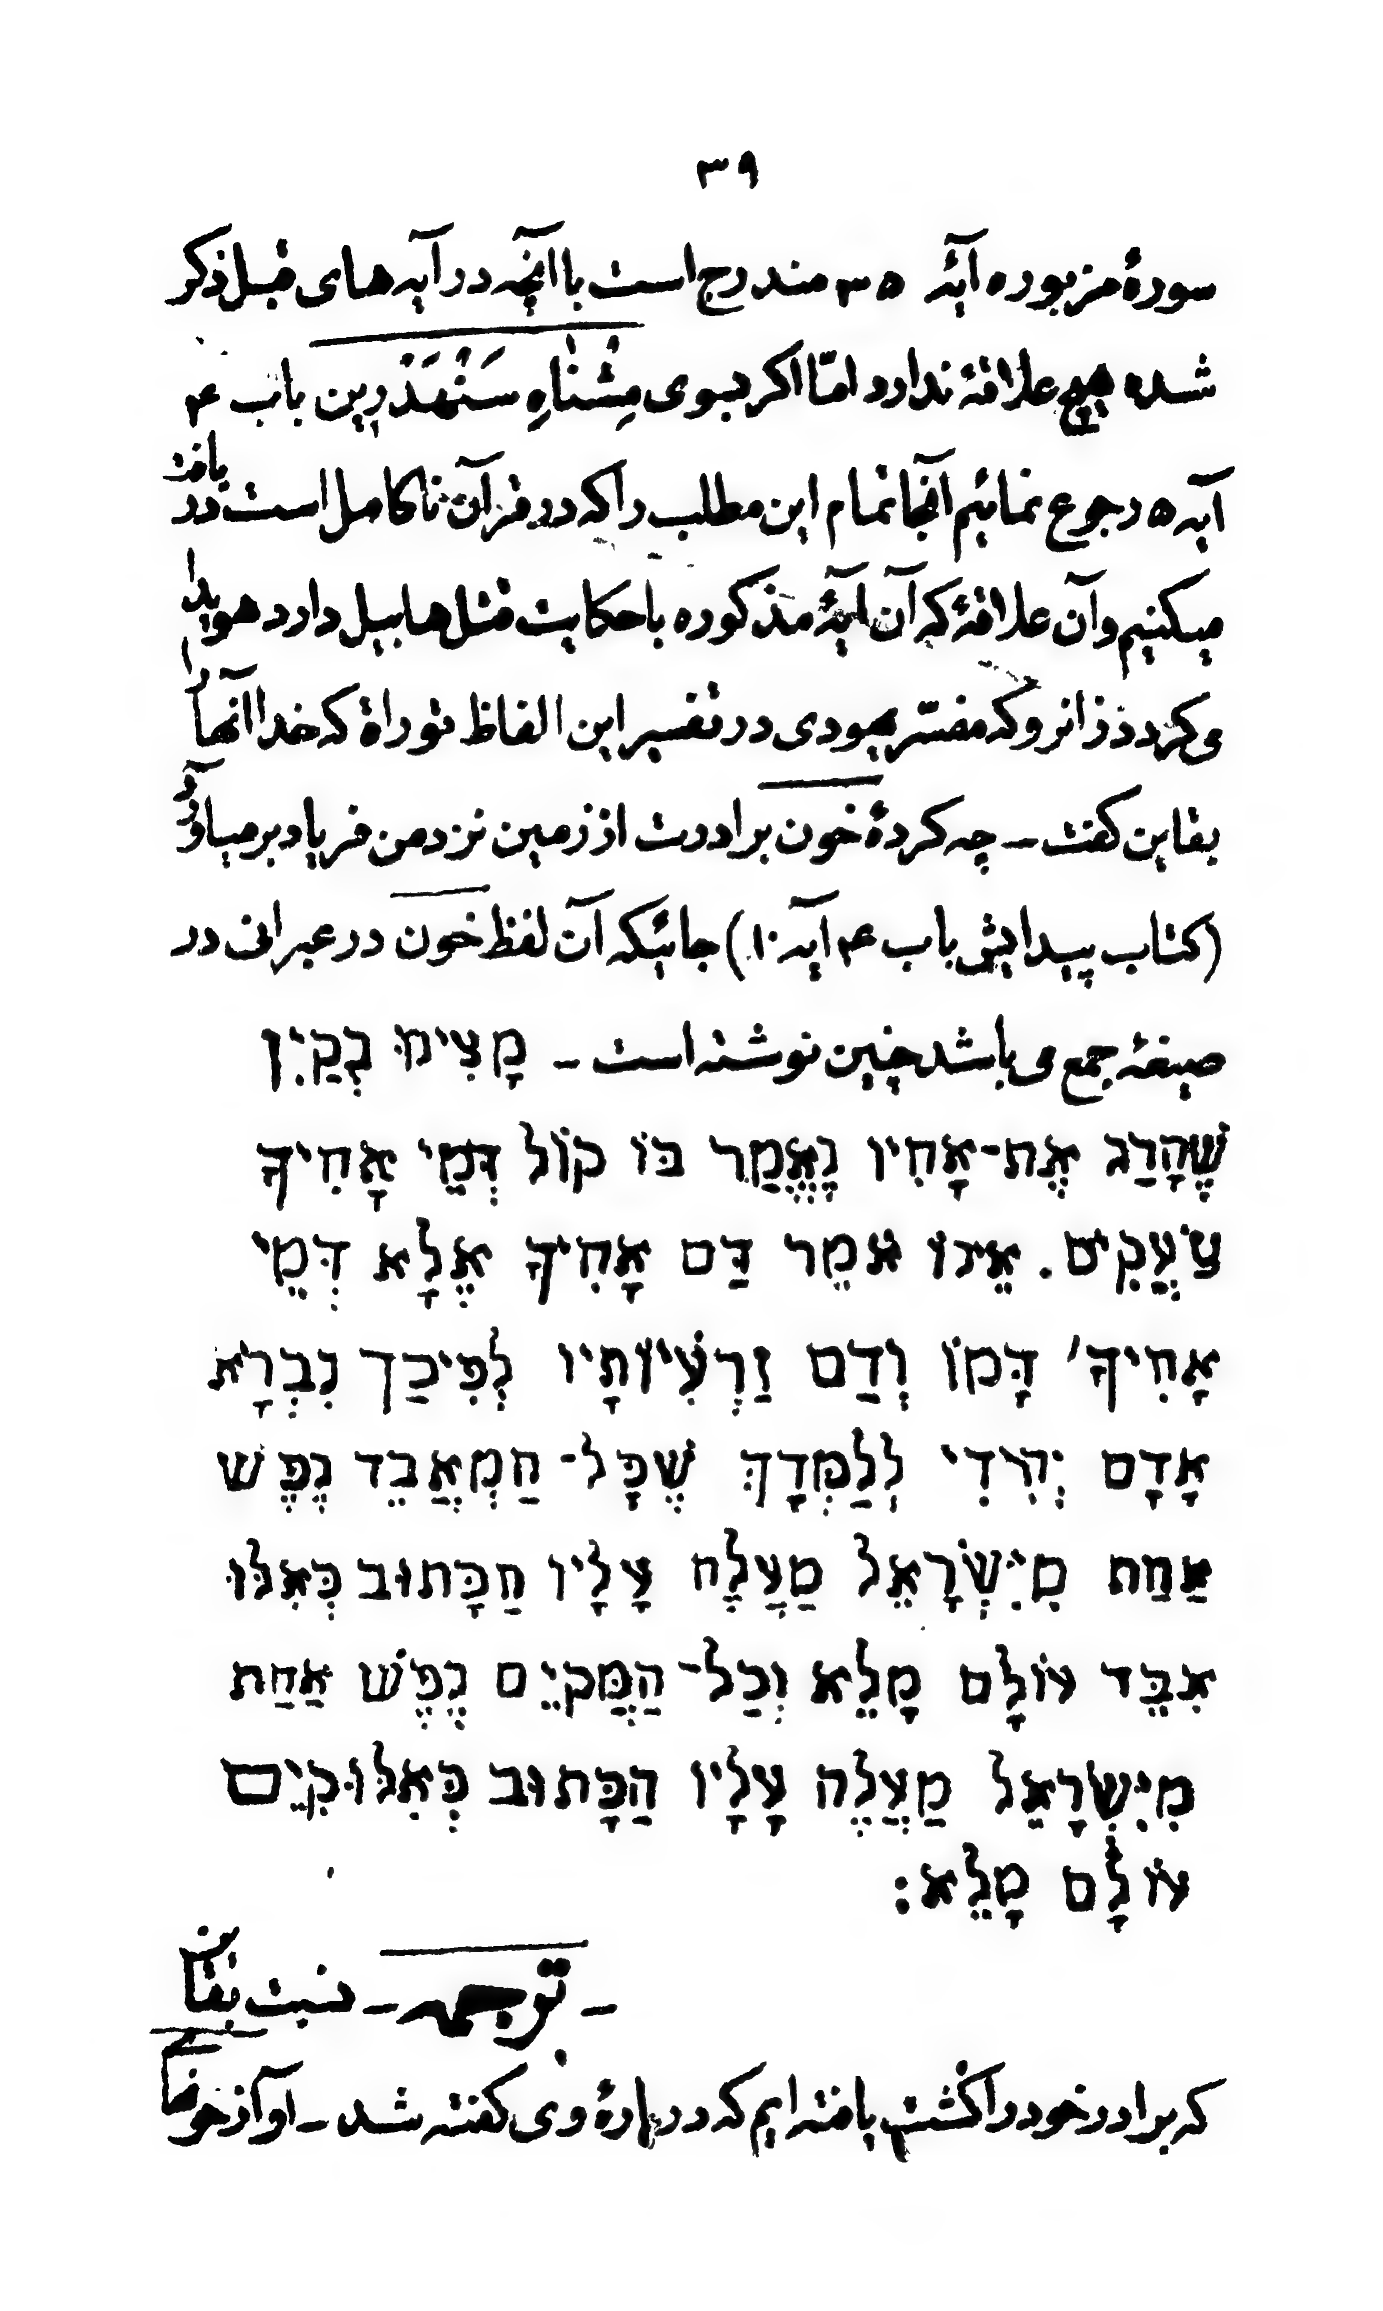 ۳۹
سورهٔ مزبوره آیهٔ ۳۵ مندرج است با آنچه در آیه های قبل ذکر
شده هیچ علاقهٔ ندارد امّا اکر بسوی مِشْناهِ سَنْهَدْرِین باب ۴
آیه ۵ رجوع نمائیم آنجا تمام این مطلب را که در قرآن نا کامل است دریافت
میکنیم و آن علاقهٔ که آن آیهٔ مذکوره با حکایت قتل هابیل دارد هویدا
میکردد زانرو که مفسّر یهودی در تفسیر این الفاظ توراة که خدا آنها را
بقاین کفت ــ چه کردهٔ خون برادرت از زمین نزد من فریاد بر میآورد
(کتاب پیدایش باب ۴ آیه ۱۰) جائیکه آن لفظ خون در عبرانی در
صیغهٔ جمع می باشد چنین نوشته است ــ מָצִינוּ בְקַיִן
שֶׁהָרַג אֶת־אָחִיו נֶאֱמַר בּוֹ קוֹל דְּמֵי אָחִיךָ
צֹעֲקִים. אֵינוֹ אֹמֵר דַּם אָחִיךָ אֶלָא דְּמֵי
אָחִיךָ' דָּמוֹ וְדַם זַרְעִיוֹתָיו לְפִיכַך נִבְרָא
אָדָם יְחִידִי לְלַמְּדָךְ שֶׁכָּל־ חַמְאַבֵד נֶפֶשׁ
אַחַת מִיִּשְׂרָאֵל מַעֲלֶה עָלָיו חַכָּתוּב כְּאִלּוּ
אִבֵּד עוֹלָם מָלֵא וְכַל־ הַמֲּקַיֵּם נֶפֶשׁ אַחַת
מִיִּשְׂרָאֵל מַעֲלֶה עָלָיו הַכָּתוּב כְּאִלּוּקִיֵּם
עוֹלָם מָלֵא:
ــ ترجمه ــ نسبت بقائن
که برادر خود را کشت یافته ایم که در بارهٔ وی کفته شد ــ آواز خونهای